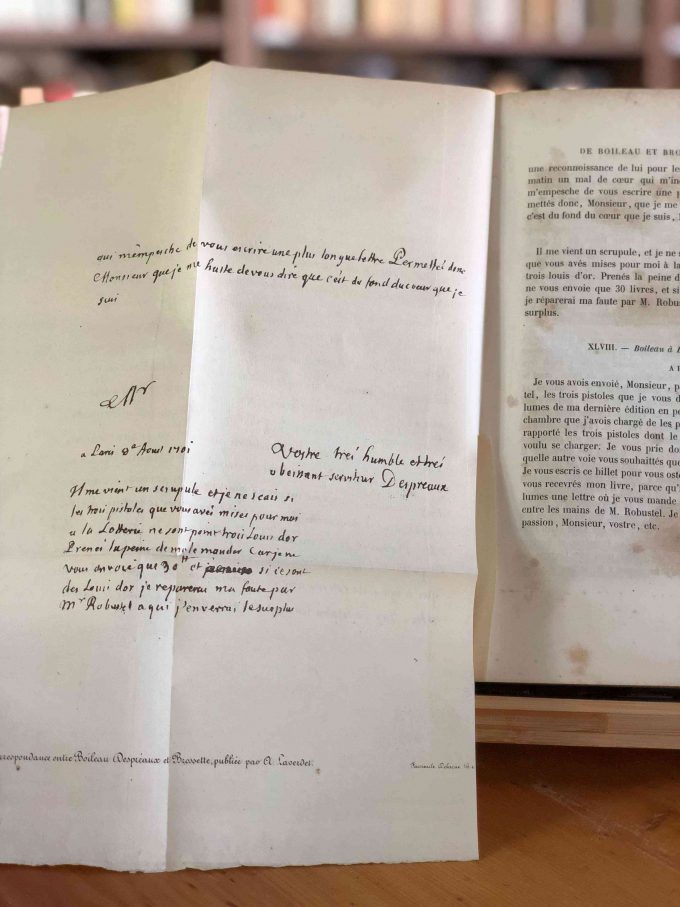 qui m'empesche de vous escrire une plus longue lettre Permettes donc
Monsieur que je me haste de vous dire que c'est du fond du cœur que je
sui
a Paris 8e Aoust 1701
Vostre trés humble et trés
obeissant serviteur Despreaux
Il me vient un scrupule et je ne scais si
les trois pistoles que vous avés mises pour moi
a la Lotterie ne sont point trois Louis dor
Prenes la peine de me le mander Car je ne
vous envoie que 30 tt et si ce sont
des Louis dor je repareraı ma faute par
Mr Robustel a qui j'enverrai le surplus
respondance entre Boileau Despréaux et Brossette, publiée par A. Laverdet.
DE BOILEAU ET BRO
une reconnoissance de lui pour le
matin un mal de cœur qui m'in
m'empesche de vous escrire une p
mettés donc, Monsieur, que je me
c'est du fond du cœur que je suis,
Il me vient un scrupule, et je ne s
que vous avés mises pour moi à la
trois louis d'or. Prenés la peine d
ne vous envoie que 30 livres, et si
je réparerai ma faute par M. Robus
surplus.
XLVIII. — Boileau à
A
Je vous avois envoié, Monsieur, p
tel, les trois pistoles que je vous d
lumes de ma dernière édition en pe
chambre que j'avois chargé de les p
rapporté les trois pistoles dont le
voulu se charger. Je vous prie do
quelle autre voie vous souhaittés qu
Je vous escris ce billet pour vous oste
vous recevrés mon livre, parce qu'i
lumes une lettre où je vous mande
entre les mains de M. Robustel. Je
passion, Monsieur, vostre, etc.